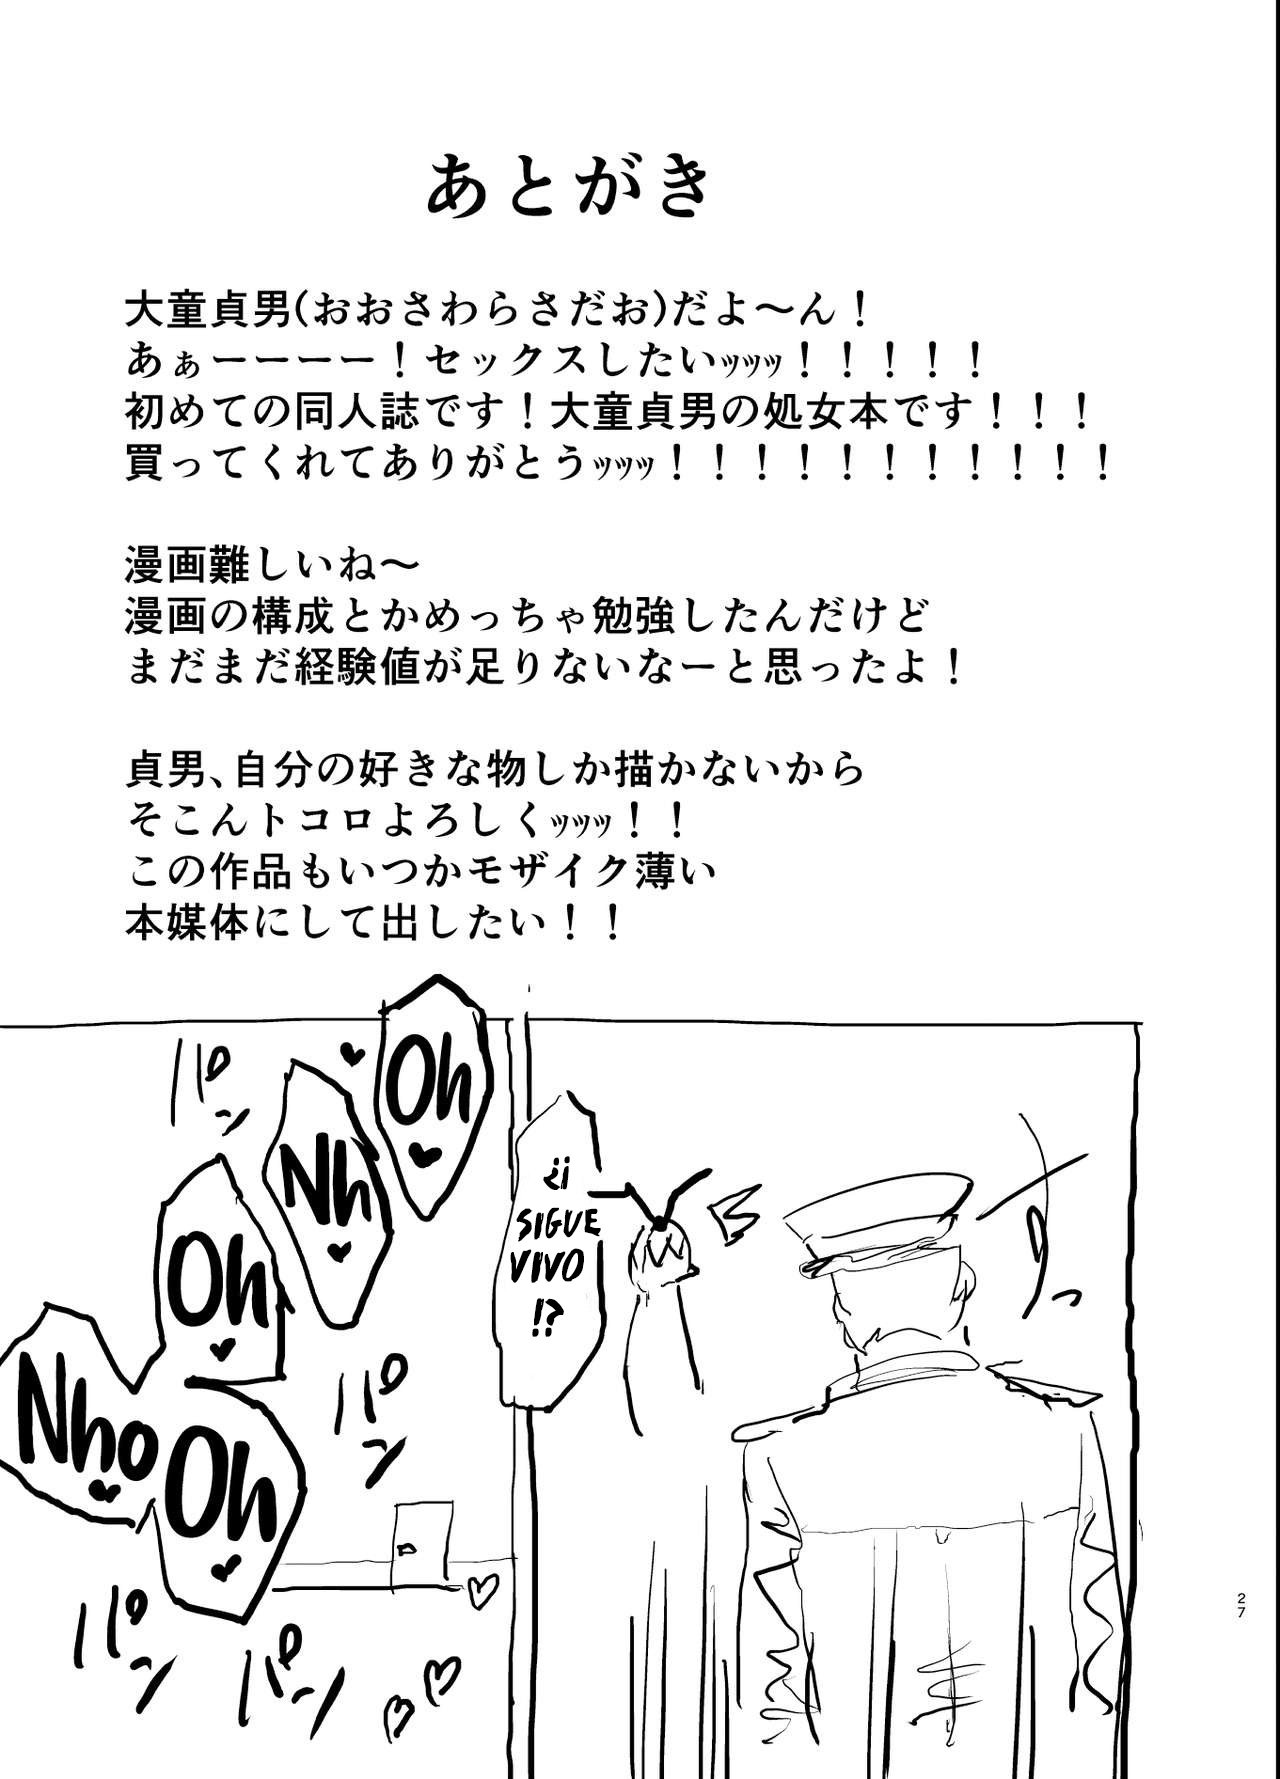 あとがき
大童貞男(おおさわらさだお)だよ〜ん！
あぁーーーー！セックスしたいｯｯｯｯ！！！！！
初めての同人誌です！大童貞男の処女本です！！！
買ってくれてありがとうｯｯｯｯ！！！！！！！！！！！
漫画難しいね〜
漫画の構成とかめっちゃ勉強したんだけど
まだまだ経験値が足りないなーと思ったよ！
貞男、自分の好きな物しか描かないから
そこんトコロよろしくｯｯｯｯ！！
この作品もいつかモザイク薄い
本媒体にして出したい！！
¿¡
SIGUE
VIVO
!?
Oh
Nh
Oh
Nho
Oh
パン
パン
パン
パン
27